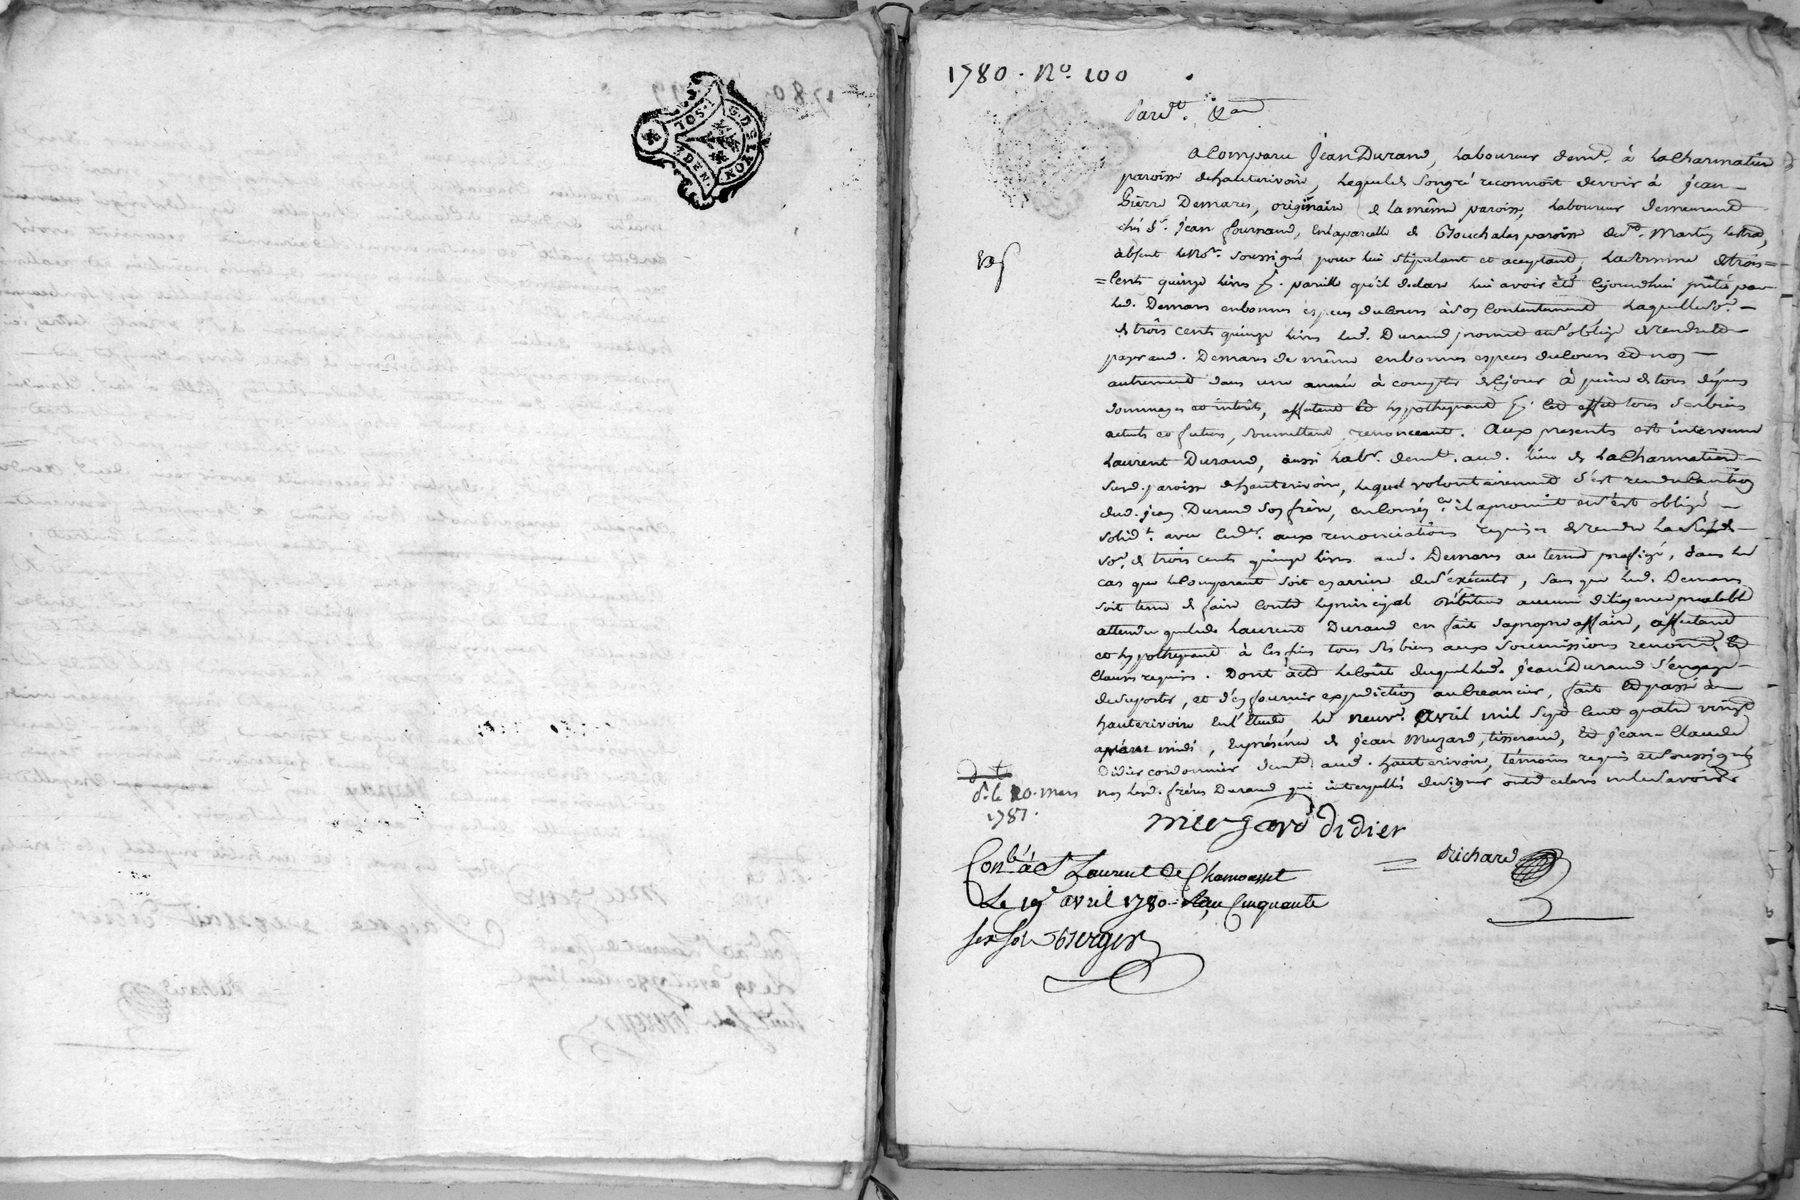 G. D. LYON.
1. SOL
DEN.
1780. No. 100
Pard.t &an
a Comparu Jean Durand, Laboureur demt. à La Charmatier
paroisse de hauterivoire, Lequel de Son gré reconnoit devoir à jean
Pierre Demares, originaire de la même paroisse, Laboureur demeurant
chés Sr. jean fournand, En la parcelle de paroisse de St. Martin Lestra,
absent Le No.re soussigné pour lui stipulant et acceptant, La somme de trois
Cents quinze livres pareille qu'il declare lui avoir été Cejourdhui prêté par
led. Demares en bonnes espèces du Cours à Son Contentement Laquelle So.e
de trois cents quinze livres led. Durand promet et s'oblige de rendre et
payer aud. Demares de même en bonnes espèces du Cours et non
autrement dans une année à compter de Cejour à peine de tous dépens
dommages et intérêts, affectant et hypothequant tous ses biens
actuels et futurs, soumettant, renonceant. Aux presents est intervenu
Laurent Durand, aussi Labr. demt. aud. lieu de La Charmatier
Susd. paroisse de hauterivoire, Lequel volontairement s'est rendu Caution
dud. jean Durand Son frère, en Conséq.ce il a promis et s'est obligé
Solid.t avec led. aux renonciations requises de rendre La
So.e de trois cents quinze livres aud. Demares au terme prefixé, dans le
cas que le Comparant soit en arriere de s'exécuter, sans que led. Demares
soit tenu de faire Contre le principal débiteur aucune diligence prealable
attendu que led. Laurent Durand en fait sa propre affaire, affectant
et hypothequant à Ces fins tous Ses biens aux Soumissions renon.ns et
Clauses requises. Dont acte Le Coût duquel led. Jean Durand S'engage
de suporter, et d'en fournir expedition au Creancier, fait et passé à
hauterivoire En l'Etude Le neuve. avril mil Sept Cent quatre vingt
midi, En présence de jean Muzard, tisserand, et jean-Claude
Didier cordonnier demt. aud. hauterivoire, témoins requis et Soussignés
non lesd. frères Durand qui interpellés de signer ont declaré ne le Savoir
d. le 20. mars
1781.
Muzard Didier
Richard
Con.lé à St Laurent de Chamousset
Le 19 avril 1780 Cinquante
Six Sols Berger